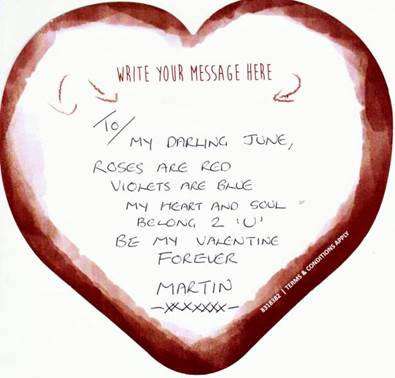 WRITE YOUR MESSAGE HERE
TO/
MY DARLING JUNE,
ROSES ARE RED
VIOLETS ARE BLUE
MY HEART AND SOUL
BELONG 2 'U'
BE MY VALENTINE
FOREVER
MARTIN
-XXXXXXX-
8318382 | TERMS & CONDITIONS APPLY